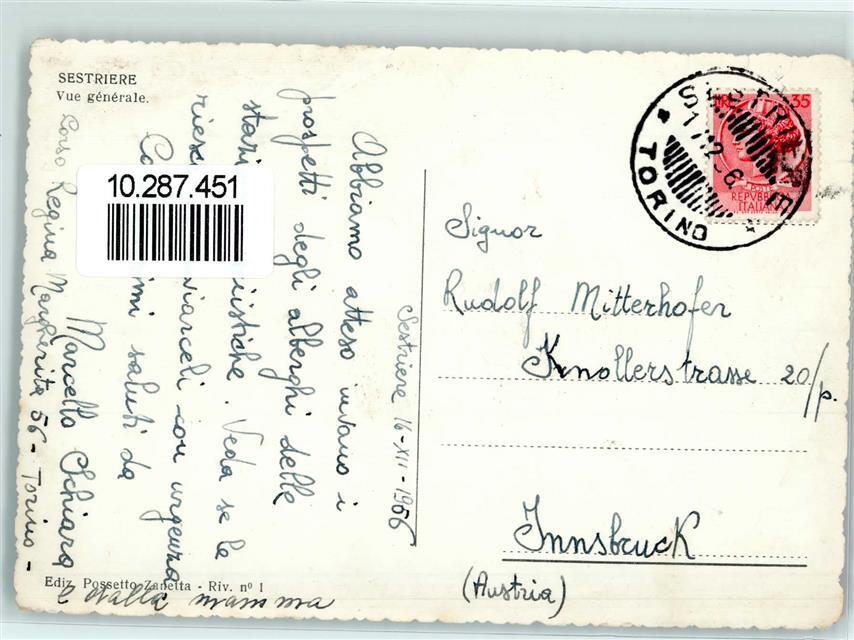 SESTRIERE
Vue générale.
10.287.451
Sestriere 16-XII-1956
Abbiamo atteso invano i
prospetti degli alberghi delle
stazioni turistiche. Veda se le
riesce inviarceli con urgenza
Carissimi saluti da
Marcello Schiara
Corso Regina Margherita 56 - Torino -
e dalla mamma
Ediz. Possetto-Zanetta - Riv. nº 1
SESTRIERE
TORINO
LIRE 35
POSTE
REPVBBLICA
ITALIANA
Signor
Rudolf Mitterhofer
Knollerstrasse 20/p.
Innsbruck
(Austria)